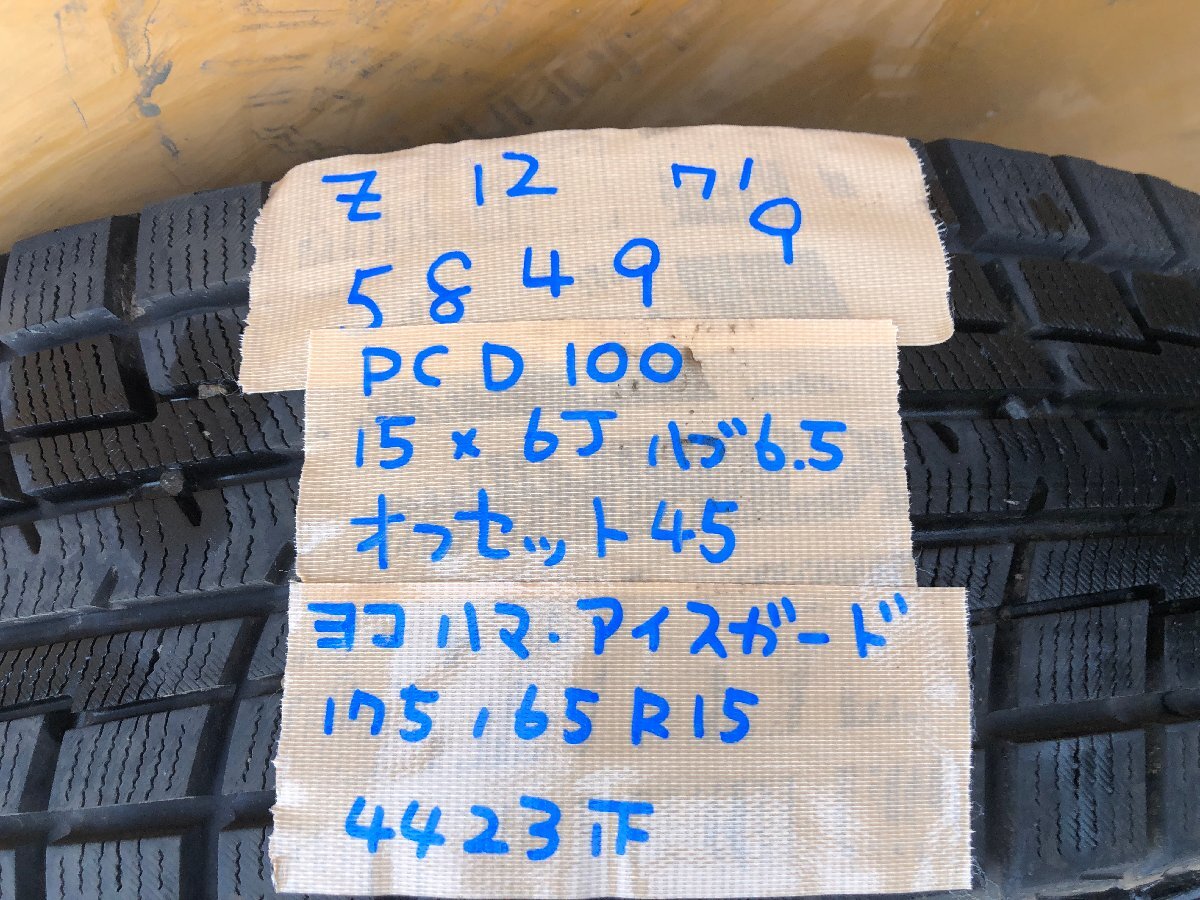 Z 12 71/9
5849
PCD100
15×6J ハブ6.5
オフセット45
ヨコハマ・アイスガード
175/65R15
4423下